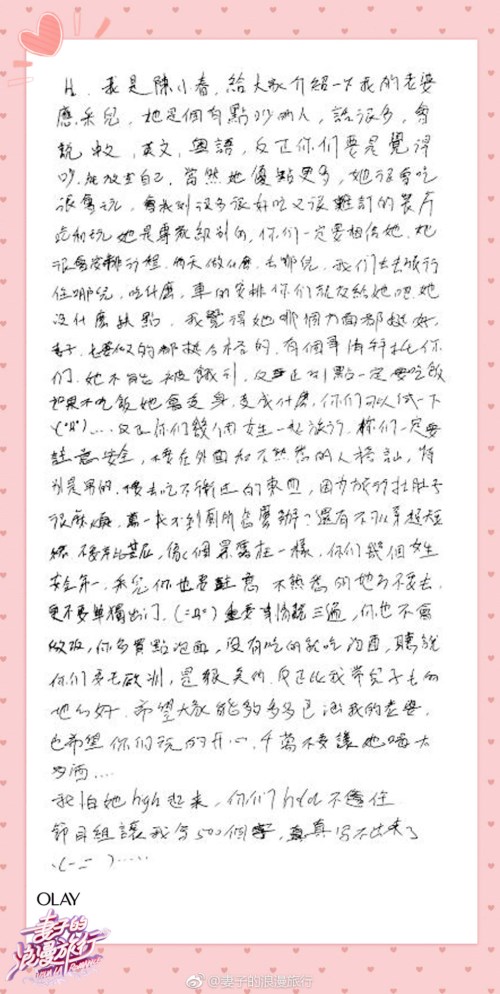 Hi、我是陳小春,給大家介紹一下我的老婆
應采兒,她是個有點吵的人,話很多,會
說軟、英文、粵語,反正你們要是覺得
吵,能放空自己,當然她優點更多,她很會吃
很會玩,會找到很多很好吃又很難訂的餐廳
吃和玩她是專家級別的,你們一定要相信她,她
很會安排行程,每天做什麼,去哪兒,我們去旅行
住哪兒,吃什麼,車的安排你們就交給她吧,她
沒什麼缺點,我覺得她哪個方面都挺好,
妻子、的都挺合格的,有個事情拜託你
們,她不能被餓到,反正到點一定要吃飯
如果不吃飯她會變身,變成什麼,你們可以試一下
....反正你們幾個女生一起旅行,你們一定要
註意安全,不要在外面和不熟悉的人搭訕,特
別是男的,不要去吃不衛生的東西,因為旅行拉肚子
很麻煩,萬一找不到廁所怎麼辦?還有不可以穿超短
裙,不要,像個柱一樣,你們幾個女生
安全第一,采兒你也要註意,不熟悉的地方不要去,
更不要單獨出门,重要事情說三遍,你也不會
做飯,你多買點泡面,沒有吃的就吃泡面,聽說
你們要去歐洲,是很美的,反正比我帶兒子去的
地方好,希望大家能夠多多包涵我的老婆,
也希望你們玩的开心,千萬不要讓她喝太
多酒....
我怕她high起来,你们hold不住
節目組讓我寫500個字,真寫不出來了
.....
OLAY
妻子的
浪漫旅行
@妻子的浪漫旅行